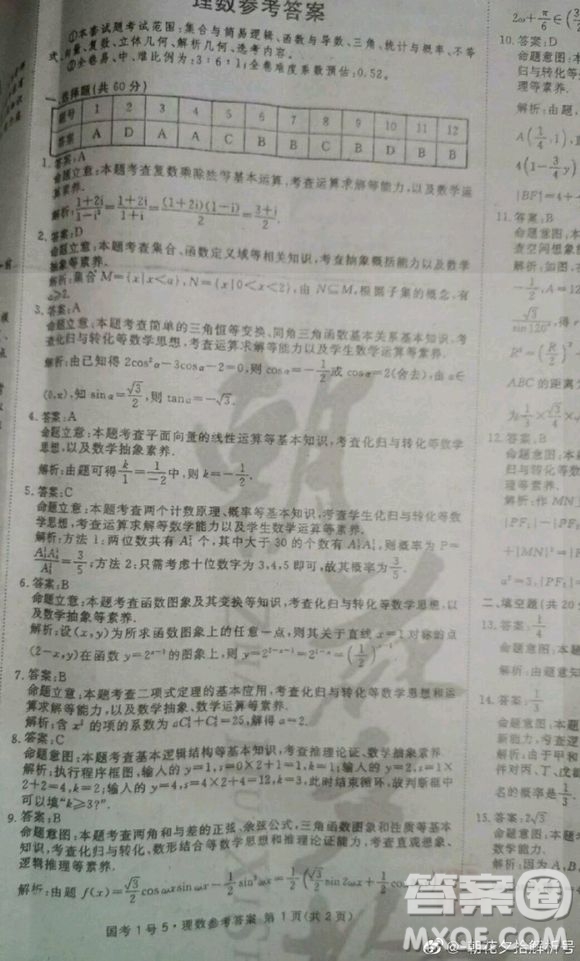 理数参考答案
①本套试题考试范围:集合与简易逻辑、函数与导数、三角、统计与概率、不等
式、向量、复数、立体几何、解析几何、选考内容.
②全卷易、中、难比例为:3:6:1;全卷难度系数预估:0.52.
一、选择题(共60分)
题号 1 2 3 4 5 6 7 8 9 10 11 12
答案 A D A A C B B C B D B B
1. 答案:A
命题立意:本题考查复数乘除法等基本运算,考查运算求解等能力,以及数学运
算素养.
解析:(1+2i)/(1-i³)=(1+2i)/(1+i)=(1+2i)(1-i)/2=(3+i)/2.
2. 答案:D
命题立意:本题考查集合、函数定义域等相关知识,考查抽象概括能力以及数学
抽象等素养.
解析:集合M={x|x<a},N={x|0<x<2},由N⊆M,根据子集的概念,有
a≥2.
3. 答案:A
命题立意:本题考查简单的三角恒等变换、同角三角函数基本关系基本知识,考
查化归与转化等数学思想,考查运算求解等能力以及学生数学运算等素养.
解析:由已知得2cos²α-3cosα-2=0,则cosα=-1/2或cosα=2(舍去),由α∈
(0,π),知sinα=√3/2,则tanα=-√3.
4. 答案:A
命题立意:本题考查平面向量的线性运算等基本知识,考查化归与转化等数学
思想,以及数学抽象素养.
解析:由题可得k/1=1/-2中,则k=-1/2.
5. 答案:C
命题立意:本题考查两个计数原理、概率等基本知识,考查学生化归与转化等数
学思想,考查运算求解等数学能力以及学生数学运算等素养.
解析:方法1:两位数共有A 个,其中大于30的个数有A A ,则概率为P=
=3/5;方法2:只需考虑十位数字为3,4,5即可,故其概率为3/5.
6. 答案:B
命题立意:本题考查函数图象及其变换等知识,考查化归与转化等数学思想,以
及数学抽象等素养.
解析:设(x,y)为所求函数图象上的任意一点,则其关于直线x=1对称的点
(2-x,y)在函数y=2ˣ⁻¹的图象上,则y=2²⁻ˣ⁻¹=2¹⁻ˣ=(1/2)ˣ⁻¹
7. 答案:B
命题立意:本题考查二项式定理的基本应用,考查化归与转化等数学思想和运
算求解等能力,以及数学运算等素养.
解析:含x²的项的系数为aC +C =25,解得a=2.
8. 答案:C
命题意图:本题考查基本逻辑结构等基本知识,考查推理论证、数学抽象素养.
解析:执行程序框图,输入的y=1,s=0×2+1=1,k=1;输入的y=2,s=1×
2+2=4,k=2;输入的y=4,s=4×2+4=12,k=3,此时结束循环,故判断框中
可以填"k≥3?".
9. 答案:B
命题意图:本题考查两角和与差的正弦、余弦公式,三角函数图象和性质等基本
知识,考查化归与转化、数形结合等数学思想和推理论证能力,考查直观想象、
逻辑推理等素养.
解析:由题f(x)=√3/2cosωxsinωx-1/2sin²ωx=1/2(√3/2sin2ωx+1/2cos
国考1号5·理数参考答案 第1页(共2页)
2ω+π/6∈(
10. 答案:D
命题意图:本
归与转化等
理等素养.
解析:由题,
A(1/4,1),
4(1-3/4y)
|BF|=4+
11. 答案:B
命题意图:本
查空间想象
解析:如图,在
-1/2,A=12
sin120°,得r
R²=(R/2)²
ABC的距离
为1/3×√3/4×
12. 答案:B
命题意图:本
归与转化等
解析:作MN
|PF₁|-|PF
+|MN|²=|
a²=3,|PF₁|
二、填空题(共20
13. 答案:1/4
命题意图:本
解析:由题意知
14. 答案:1/3
命题意图:本
新能力.
解析:由于甲和
伴对丙、丁、戊
名的概率是1/3.
15. 答案:2√3
命题意图:本
数学能力.
解析:因为
朝花夕拾
答案圈
@朝花夕拾解析号